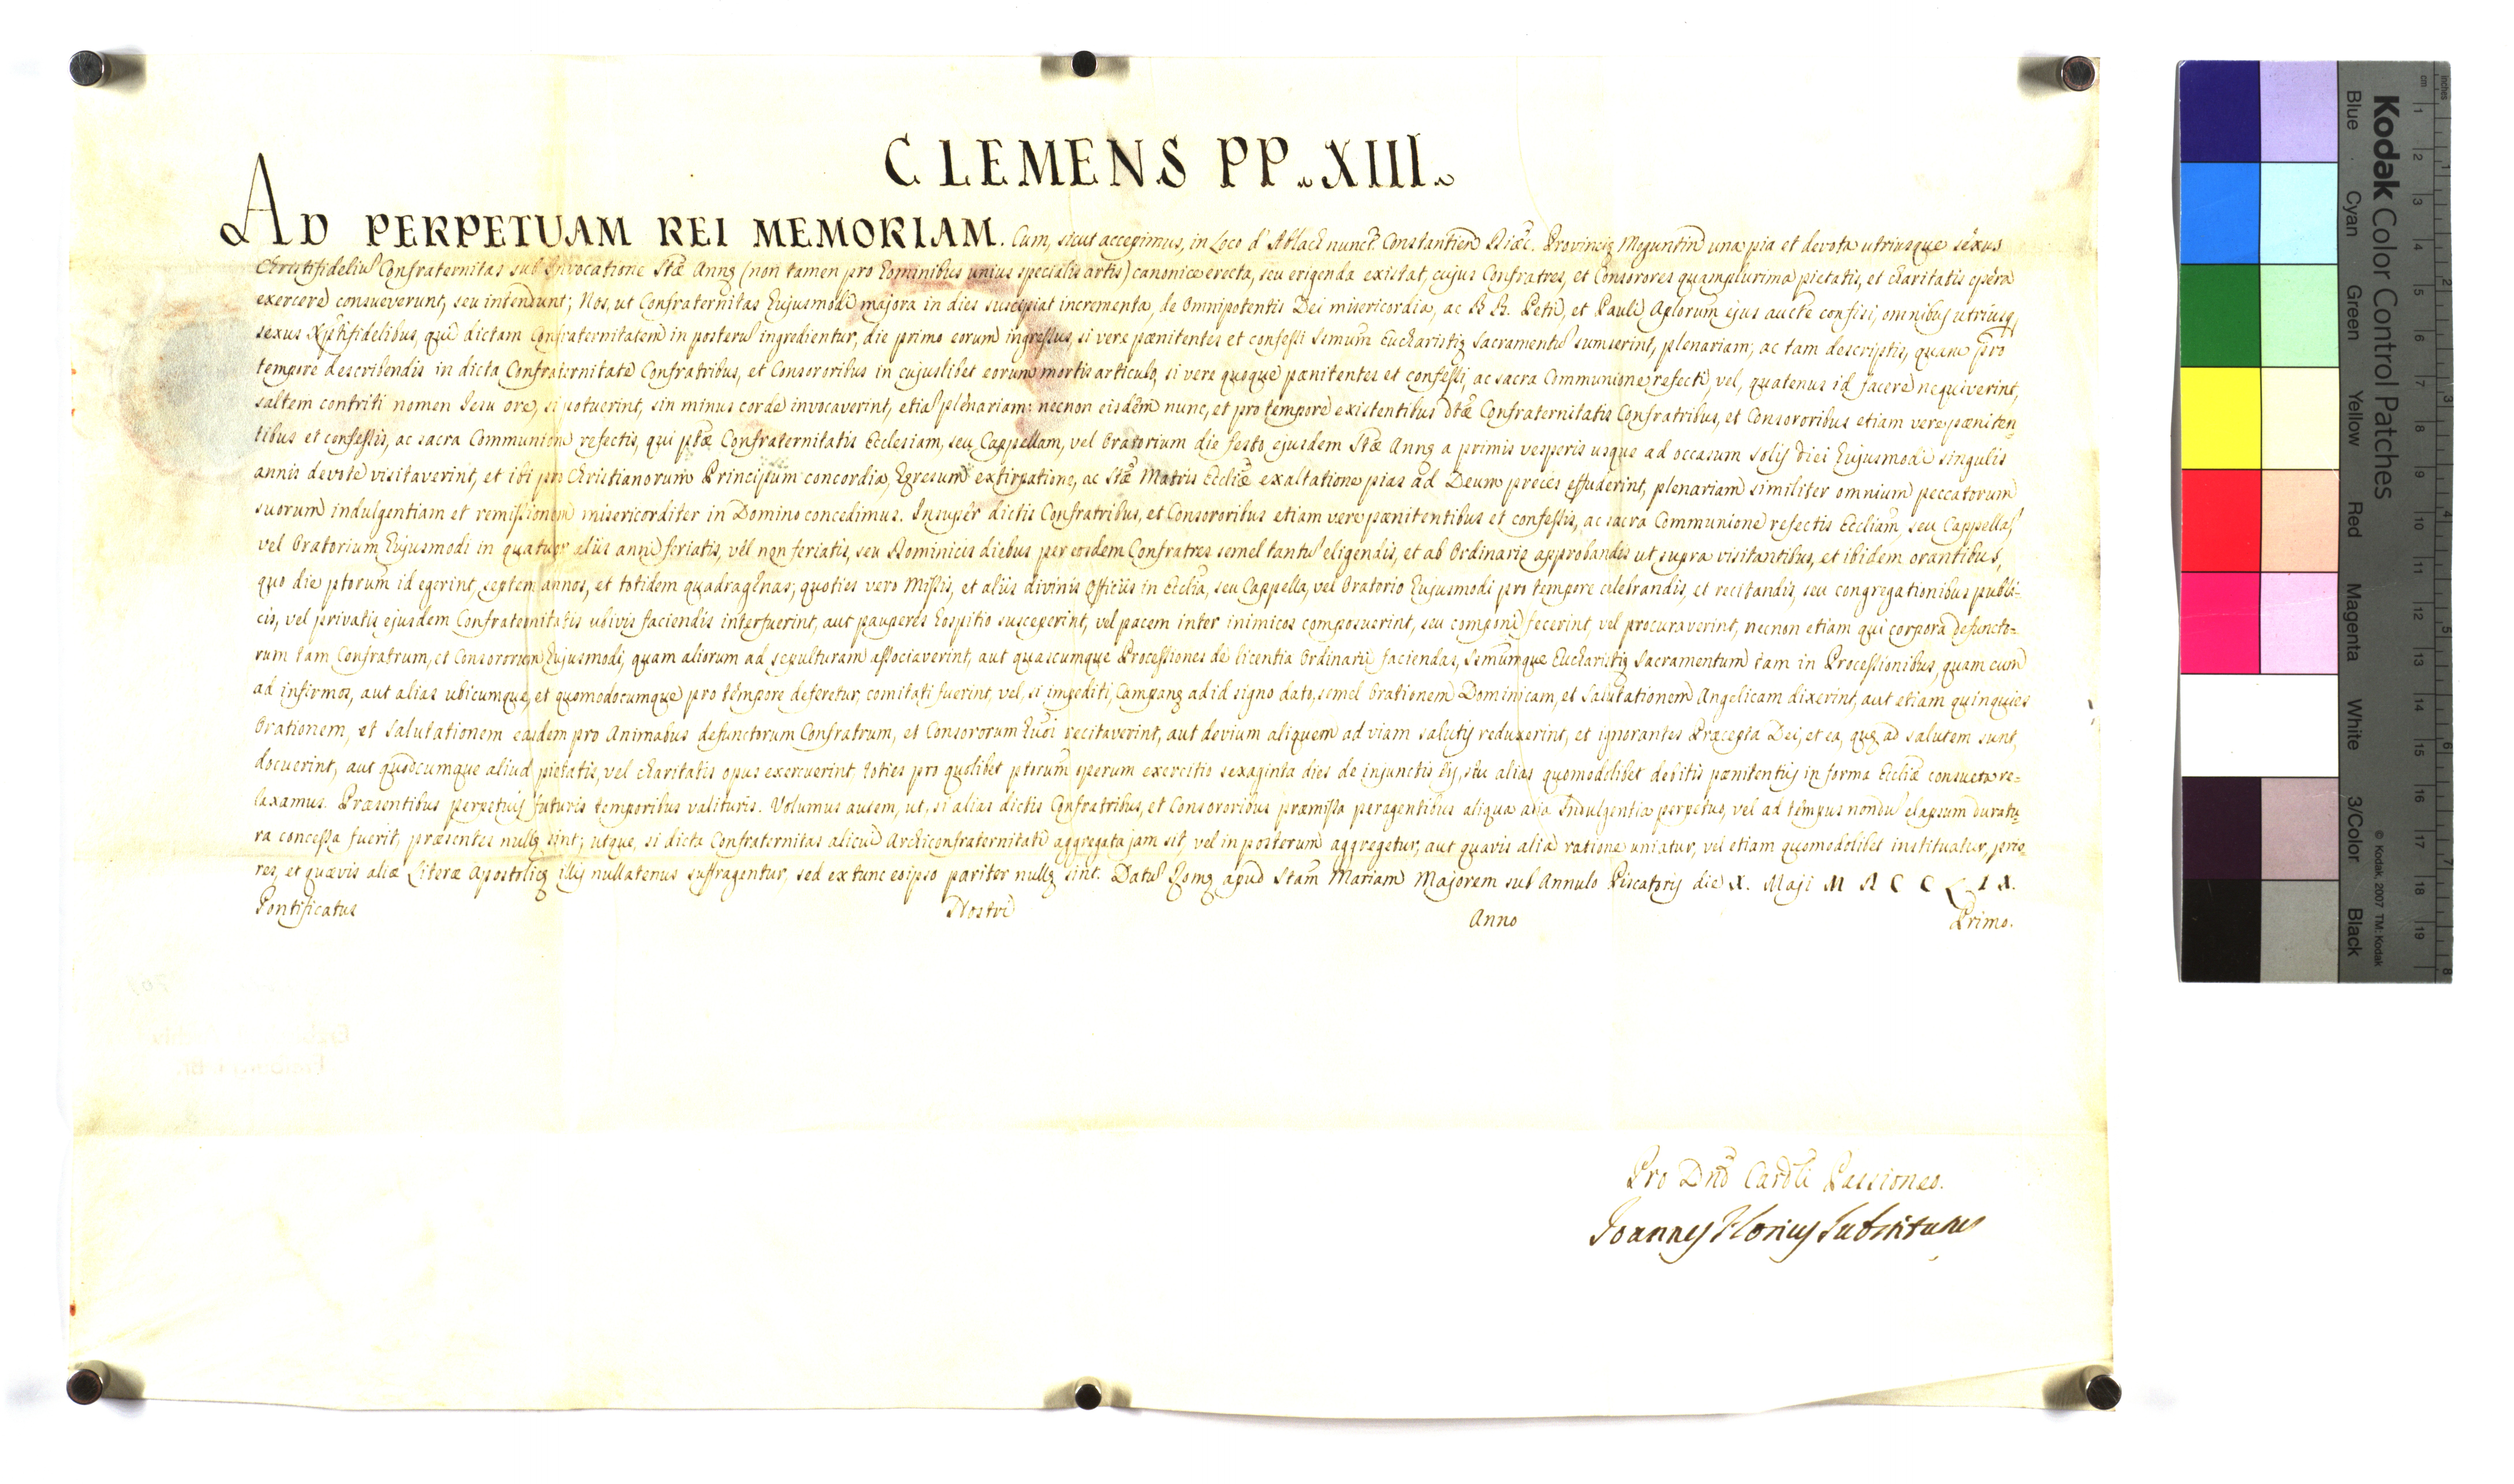 CLEMENS PP. XIII.
AD PERPETUAM REI MEMORIAM. Cum, sicut accepimus, in Loco d' Ablach nuncᵗ. Constantien Diæc. Provincię Moguntin una pia et devota utriusque sexus
Christifideliu Confraternitas sub Invocatione Stæ Annę (non tamen pro hominibus unius specialis artis) canonice erecta, seu erigenda existat, cujus Confratres, et Consorores quamplurima pietatis, et charitatis opera
exercere consueverunt, seu intendunt; Nos, ut Confraternitas hujusmodi majora in dies suscipiat incrementa, de Omnipotentis Dei misericordia, ac B B. Petri, et Pauli Aplorum ejus aucte confisi, omnibus utriusq
sexus Xptifidelibus, qui dictam Confraternitatem in posteru ingredientur, die primo eorum ingressus, si vere pænitentes et confessi Ssmum Eucharistię Sacramentu sumserint, plenariam; ac tam descriptis, quam pro
tempore describendis in dicta Confraternitate Confratribus, et Consororibus in cujuslibet eorum mortis articulo, si vere quoque pænitentes et confessi, ac sacra Communione refecti, vel, quatenus id facere nequiverint,
saltem contriti nomen Jesu ore, si potuerint, sin minus corde invocaverint, etia plenariam; necnon eisdem nunc, et pro tempore existentibus dtæ Confraternitatis Confratribus, et Consororibus etiam vere pæniten=
tibus et confessis, ac sacra Communione refectis, qui ptæ Confraternitatis Ecclesiam, seu Cappellam, vel Oratorium die festo ejusdem Stæ Annę a primis vesperis usque ad occasum solis diei hujusmodi singulis
annis devote visitaverint, et ibi pro Christianorum Principum concordia, hęresum extirpatione, ac Stæ Matris Eccliæ exaltatione pias ad Deum preces effuderint, plenariam similiter omnium peccatorum
suorum indulgentiam et remissionem misericorditer in Domino concedimus. Insuper dictis Confratribus, et Consororibus etiam vere pænitentibus et confessis, ac sacra Communione refectis Eccliam, seu Cappella,
vel Oratorium hujusmodi in quatuor aliis anni feriatis, vel non feriatis, seu Dominicis diebus per eosdem Confratres semel tantu eligendis, et ab Ordinario approbandis ut supra visitantibus, et ibidem orantibus,
quo die ptorum id egerint, septem annos, et totidem quadragenas; quoties vero Missis, et aliis divinis Officiis in Ecclia, seu Cappella, vel Oratorio hujusmodi pro tempore celebrandis, et recitandis, seu congregationibus publi=
cis, vel privatis ejusdem Confraternitatis ubivis faciendis interfuerint, aut pauperes hospitio susceperint, vel pacem inter inimicos composuerint, seu componi fecerint, vel procuraverint, necnon etiam qui corpora defuncto=
rum tam Confratrum, et Consororum hujusmodi, quam aliorum ad sepulturam associaverint, aut quascumque Processiones de licentia Ordinarii faciendas, Ssmumque Eucharistię Sacramentum tam in Processionibus, quam cum
ad infirmos, aut alias ubicumque, et quomodocumque pro tempore deferetur comitati fuerint, vel, si impediti, Campanę ad id signo dato, semel Orationem Dominicam, et Salutationem Angelicam dixerint, aut etiam quinquies
Orationem, et Salutationem easdem pro Animabus defunctorum Confratrum, et Consororum hmoi recitaverint, aut devium aliquem ad viam salutis reduxerint, et ignorantes Præcepta Dei, et ea, quę ad salutem sunt,
docuerint, aut quodcumque aliud pietatis, vel charitatis opus exercuerint, toties pro quolibet ptorum operum exercitio sexaginta dies de injunctis eis, seu alias quomodolibet debitis pænitentiis in forma Eccliæ consueta re=
laxamus. Præsentibus perpetuis futuris temporibus valituris. Volumus autem, ut, si alias dictis Confratribus, et Consororibus præmissa peragentibus aliqua alia Indulgentia perpetuo, vel ad tempus nondu elapsum duratu=
ra concessa fuerit, præsentes nullę sint; utque, si dicta Confraternitas alicui Archiconfraternitati aggregata jam sit, vel in posterum aggregetur, aut quavis alia ratione uniatur, vel etiam quomodolibet instituatur, prio=
res, et quævis aliæ Literæ Apostolicę illis nullatenus suffragentur, sed ex tunc eoipso pariter nullę sint. Datu Romę apud Stam Mariam Majorem sub Annulo Piscatoris die X. Maji M D C C L I X.
Pontificatus Nostri Anno Primo.
Pro Dno Cardli Passioneo.
Joannes Florius Substitutus
Kodak Color Control Patches
Blue Cyan Green Yellow Red Magenta White 3/Color Black
© Kodak, 2007 TM: Kodak
cm 1 2 3 4 5 6 7 8 9 10 11 12 13 14 15 16 17 18 19
inches 1 2 3 4 5 6 7 8